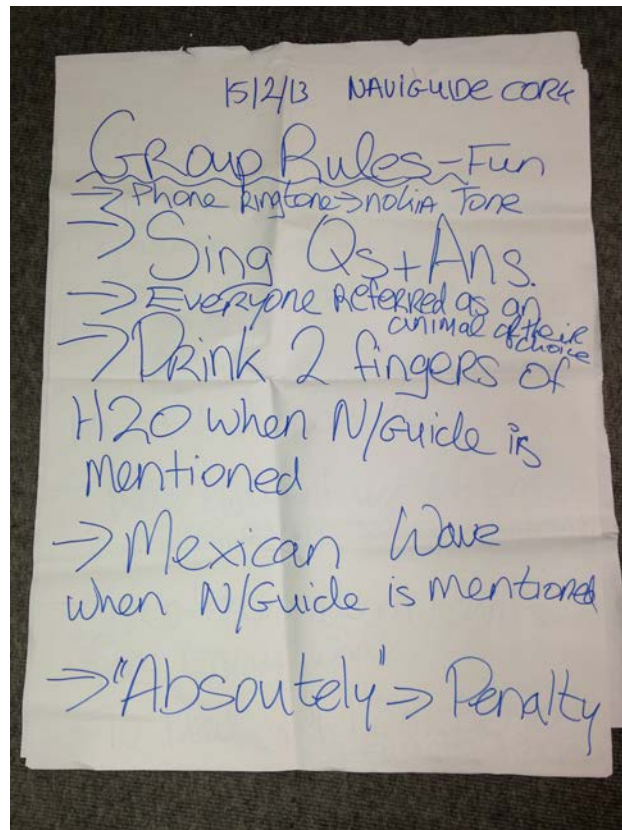 15/2/13 NAVIGUIDE CORK
GROUP RULES - FUN
→ Phone Ringtone → NOKIA TONE
→ Sing Qs + Ans.
→ EVERYONE REFERRED as an
animal of their
choice
→ DRINK 2 fingers of
H2O when N/Guide is
mentioned
→ Mexican Wave
when N/Guide is mentioned
→ "Absoutely" → Penalty